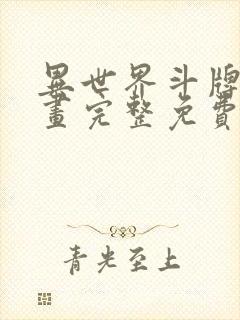 異世界斗牌
畫完整免費
青光至上